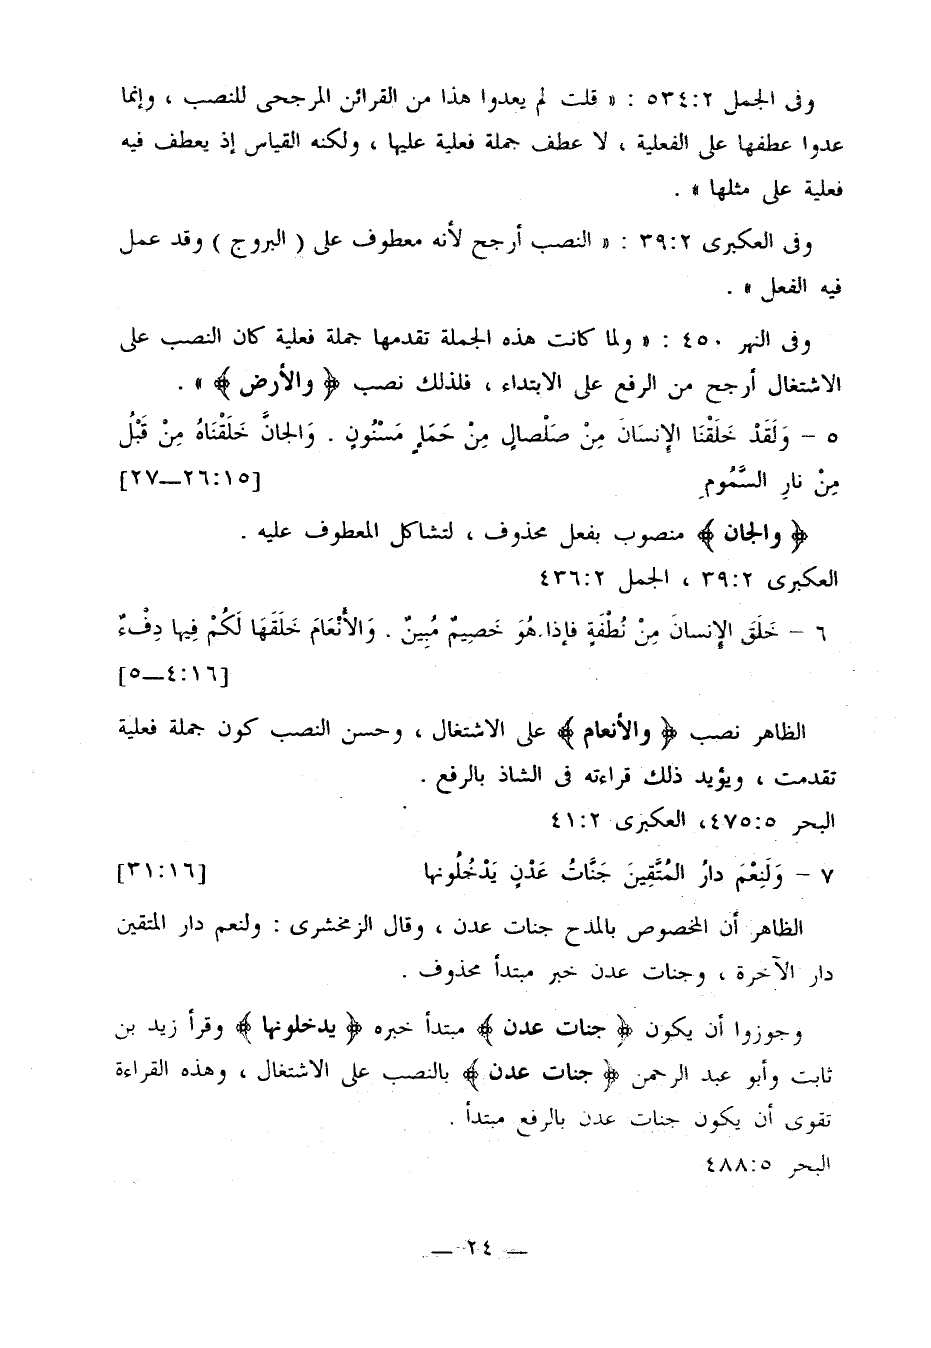 وفى الجمل ٥٣٤:٢ : « قلت لم يعدوا هذا من القرائن المرجحى للنصب ، وإنما
عدوا عطفها على الفعلية ، لا عطف جملة فعلية عليها ، ولكنه القياس إذ يعطف فيه
فعلية على مثلها » .
وفى العكبرى ٣٩:٢ : « النصب أرجح لأنه معطوف على ( البروج ) وقد عمل
فيه الفعل » .
وفى النهر ٤٥٠ : « ولما كانت هذه الجملة تقدمها جملة فعلية كان النصب على
الاشتغال أرجح من الرفع على الابتداء ، فلذلك نصب ﴿ والأرض ﴾ » .
٥ – وَلَقَدْ خَلَقْنَا الإِنسَانَ مِنْ صَلْصالٍ مِنْ حَمَإٍ مَسْنُونٍ . وَالجانَّ خَلَقْنَاهُ مِنْ قَبْلُ
مِنْ نارِ السَّمُومِ [٢٦:١٥—٢٧]
﴿ والجان ﴾ منصوب بفعل محذوف ، لتشاكل المعطوف عليه .
العكبرى ٣٩:٢ ، الجمل ٤٣٦:٢
٦ – خَلَقَ الإِنسانَ مِنْ نُطْفَةٍ فإذا هُوَ خَصِيمٌ مُبِينٌ . وَالأَنْعَامَ خَلَقَهَا لَكُمْ فِيها دِفْءٌ
[٤:١٦—٥]
الظاهر نصب ﴿ والأنعام ﴾ على الاشتغال ، وحسن النصب كون جملة فعلية
تقدمت ، ويؤيد ذلك قراءته فى الشاذ بالرفع .
البحر ٤٧٥:٥، العكبرى ٤١:٢
٧ – وَلَنِعْمَ دارُ المُتَّقِينَ جَنَّاتُ عَدْنٍ يَدْخُلُونها [٣١:١٦]
الظاهر أن المخصوص بالمدح جنات عدن ، وقال الزمخشرى : ولنعم دار المتقين
دار الآخرة ، وجنات عدن خبر مبتدأ محذوف .
وجوزوا أن يكون ﴿ جنات عدن ﴾ مبتدأ خبره ﴿ يدخلونها ﴾ وقرأ زيد بن
ثابت وأبو عبد الرحمن ﴿ جنات عدن ﴾ بالنصب على الاشتغال ، وهذه القراءة
تقوى أن يكون جنات عدن بالرفع مبتدأ .
البحر ٤٨٨:٥
— ٢٤ —